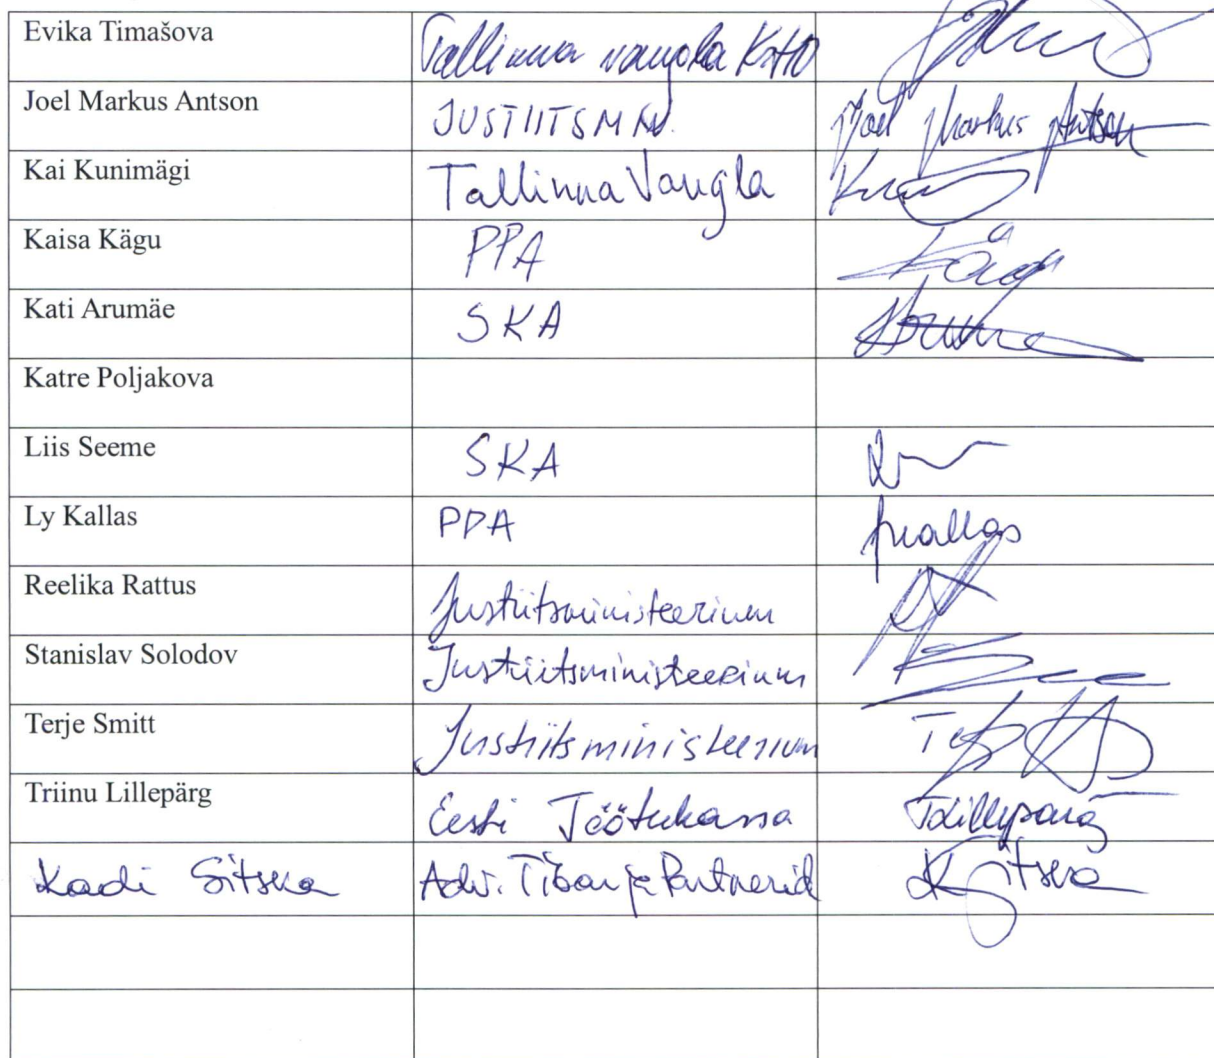 Evika Timašova Tallinna vangla KrHO
Joel Markus Antson JUSTIITSMIN. Joel Markus Antson
Kai Kunimägi Tallinna Vangla
Kaisa Kägu PPA Kägu
Kati Arumäe SKA
Katre Poljakova
Liis Seeme SKA
Ly Kallas PPA Kallas
Reelika Rattus Justiitsministeerium
Stanislav Solodov Justiitsministeerium
Terje Smitt Justiitsministeerium
Triinu Lillepärg Eesti Töötukassa TLillepärg
Kadi Sitska Adv. Tibar ja Partnerid KSitska